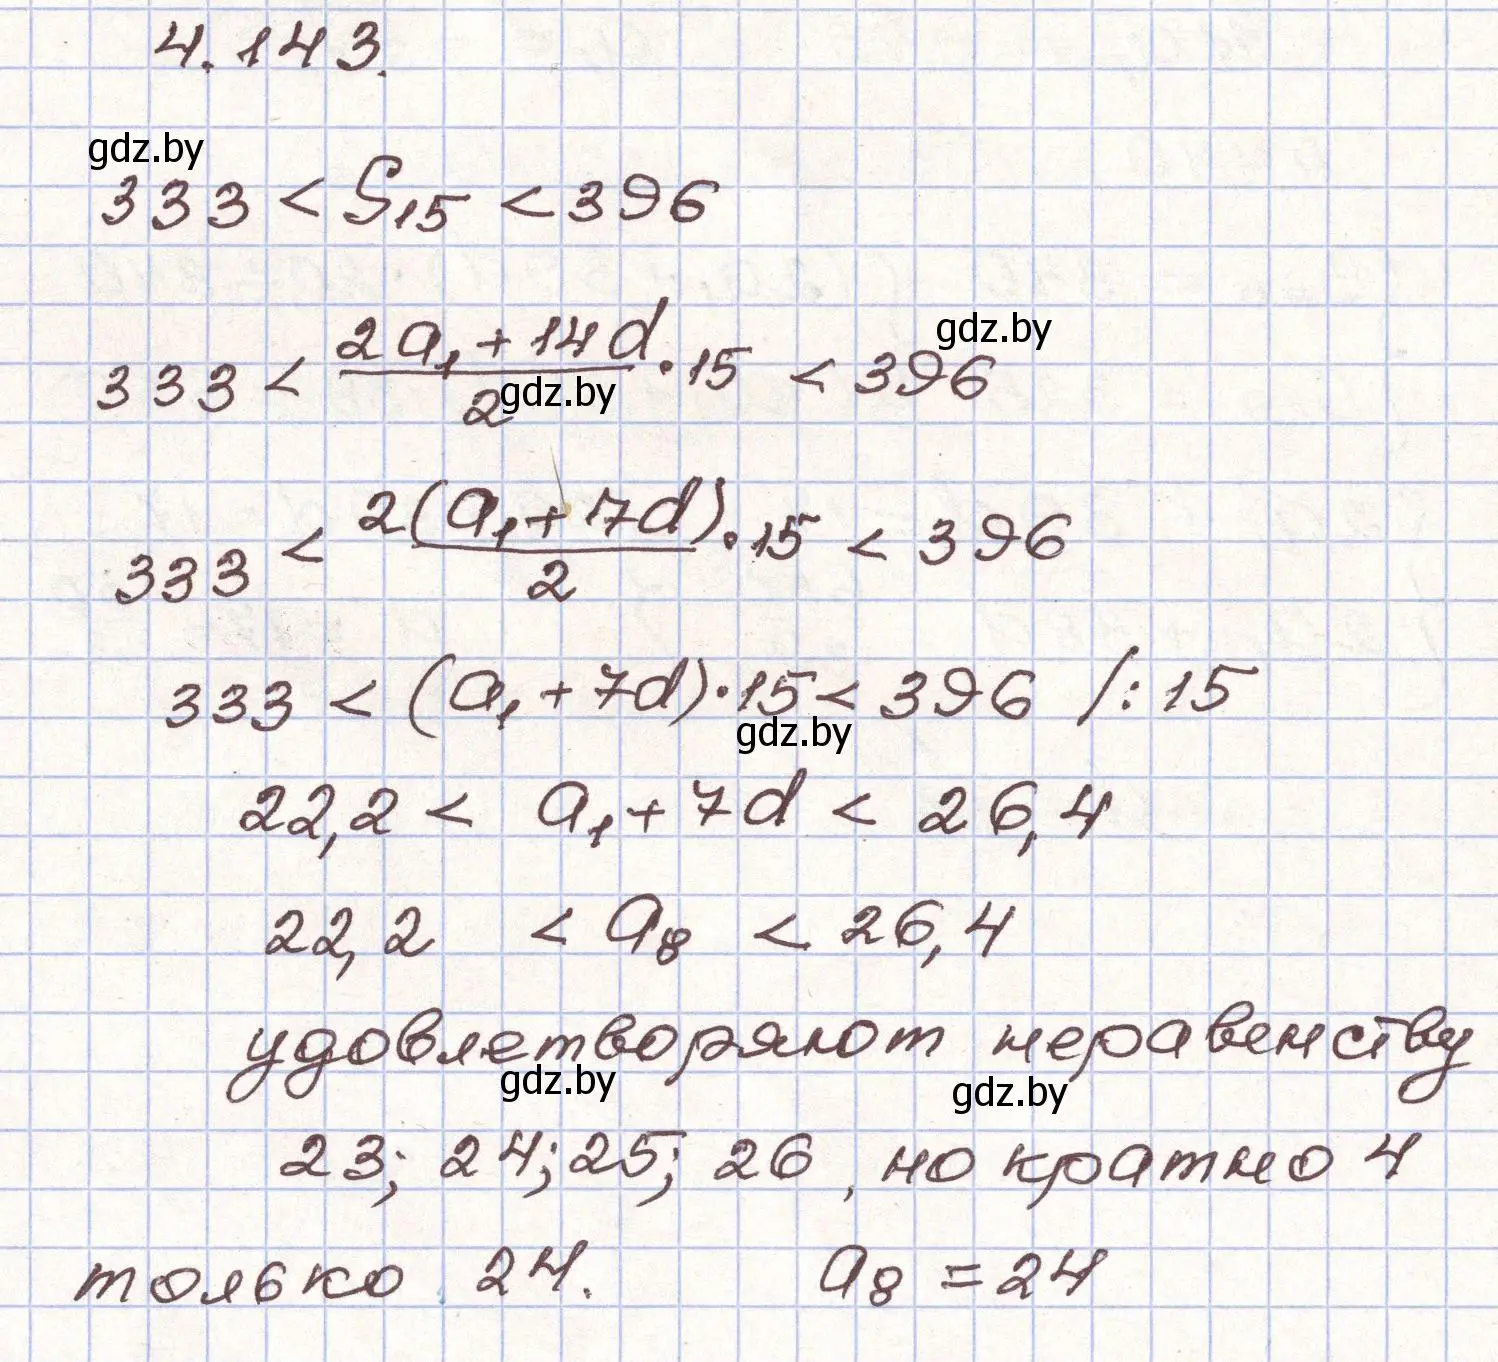 4.143.
gdz.by
333 < S₁₅ < 396
gdz.by
333 < (2a₁ + 14d)/2 · 15 < 396
gdz.by
333 < 2(a₁ + 7d)/2 · 15 < 396
333 < (a₁ + 7d) · 15 < 396 /: 15
gdz.by
22,2 < a₁ + 7d < 26,4
22,2 < a₈ < 26,4
удовлетворяют неравенству
gdz.by gdz.by
23; 24; 25; 26, но кратно 4
только 24. a₈ = 24